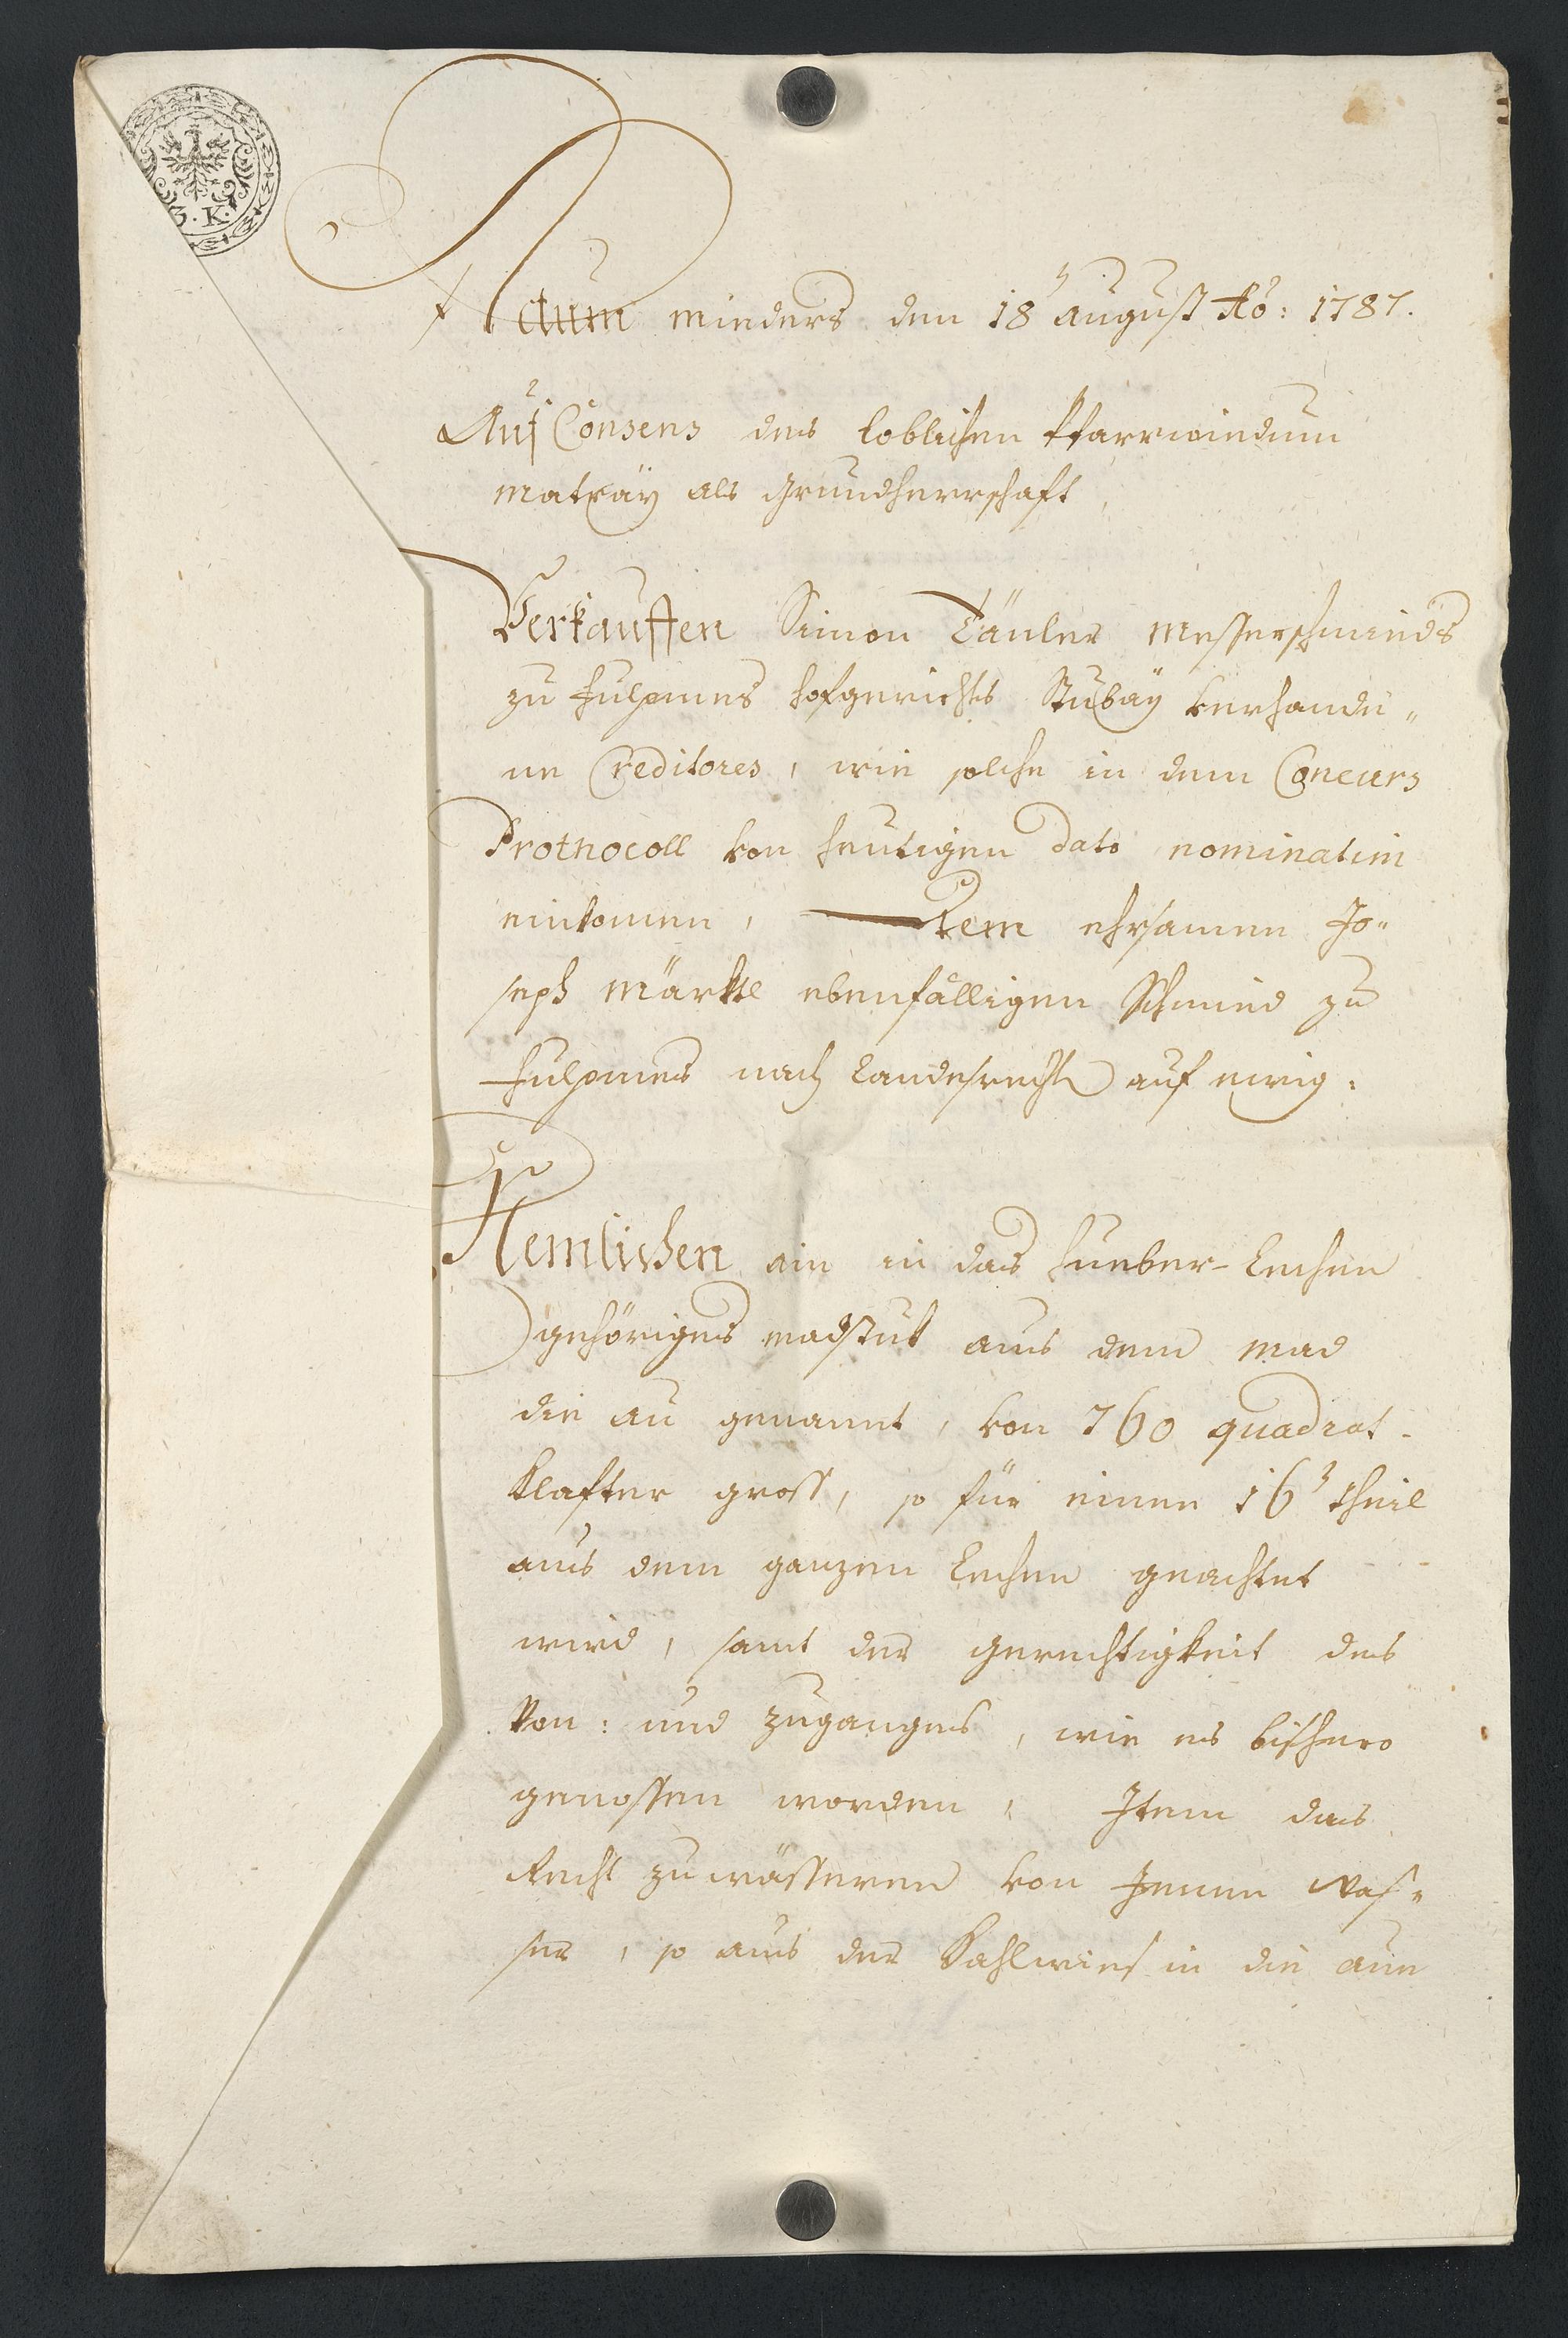 3. K.
Actum mieders den 18t August Ao: 1787.
Auf Consens des loblichen Pfarrwiedum
Matray als Grundherrschaft
Verkauffen Simon Täuler Messerschmieds
zu Fulpmes Hofgerichts Stubay verhande„
ne Creditores, wie solche in dem Concurs
Prothocoll von heutigen dato nominatim
einkomen, Dem ehrsamen Jo„
seph Märkl ebenfälligen Schmied zu
Fulpmes nach Landesrecht auf ewig:
Nemlichen ain in das Hueber-Lechen
gehöriges madstuk aus dem mad
die au genannt, von 760 quadrat-
klafter gross, so für einen 16t theil
aus dem ganzen Lechen geachtet
wird, samt der gerechtigkeit des
Von: und zuganges, wie es bishero
genossen worden, Item das
Recht zu wässeren von Jenem Was„
ser, so aus der Kahlwies in die aue